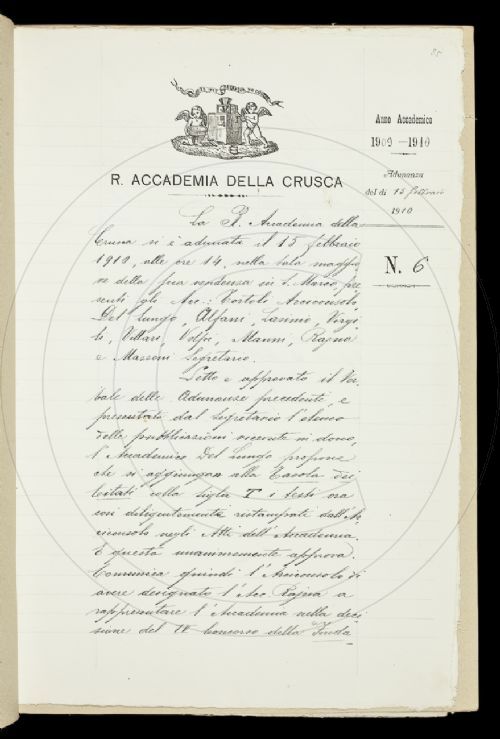 85
Anno Accademico
1909 — 1910
Adunanza
del dì 15 febbraio
1910
N. 6
R. ACCADEMIA DELLA CRUSCA
La R. Accademia della
Crusca si è adunata il 15 febbraio
1910, alle ore 14, nella sala maggio
re della sua residenza in S. Marco, pre
senti gli Acc.: Tortoli Arciconsolo,
Del Lungo, Alfani, Casini, Virgi
li, Villari, Volpi, Manni, Rajna
e Mazzoni Segretario.
Letto e approvato il Ver
bale delle Adunanze precedenti, e
presentato dal Segretario l'elenco
delle pubblicazioni ricevute in dono,
l'Accademico Del Lungo propone
che si aggiungan alla Tavola dei
Citati colla sigla T i testi ora
così diligentemente ristampati dall'Ar
ciconsolo negli Atti dell'Accademia.
E questa unanimemente approva.
Comunica quindi l'Arciconsolo di
avere designato l'Acc. Rajna a
rappresentare l'Accademia nella deci
sione del IV Concorso della